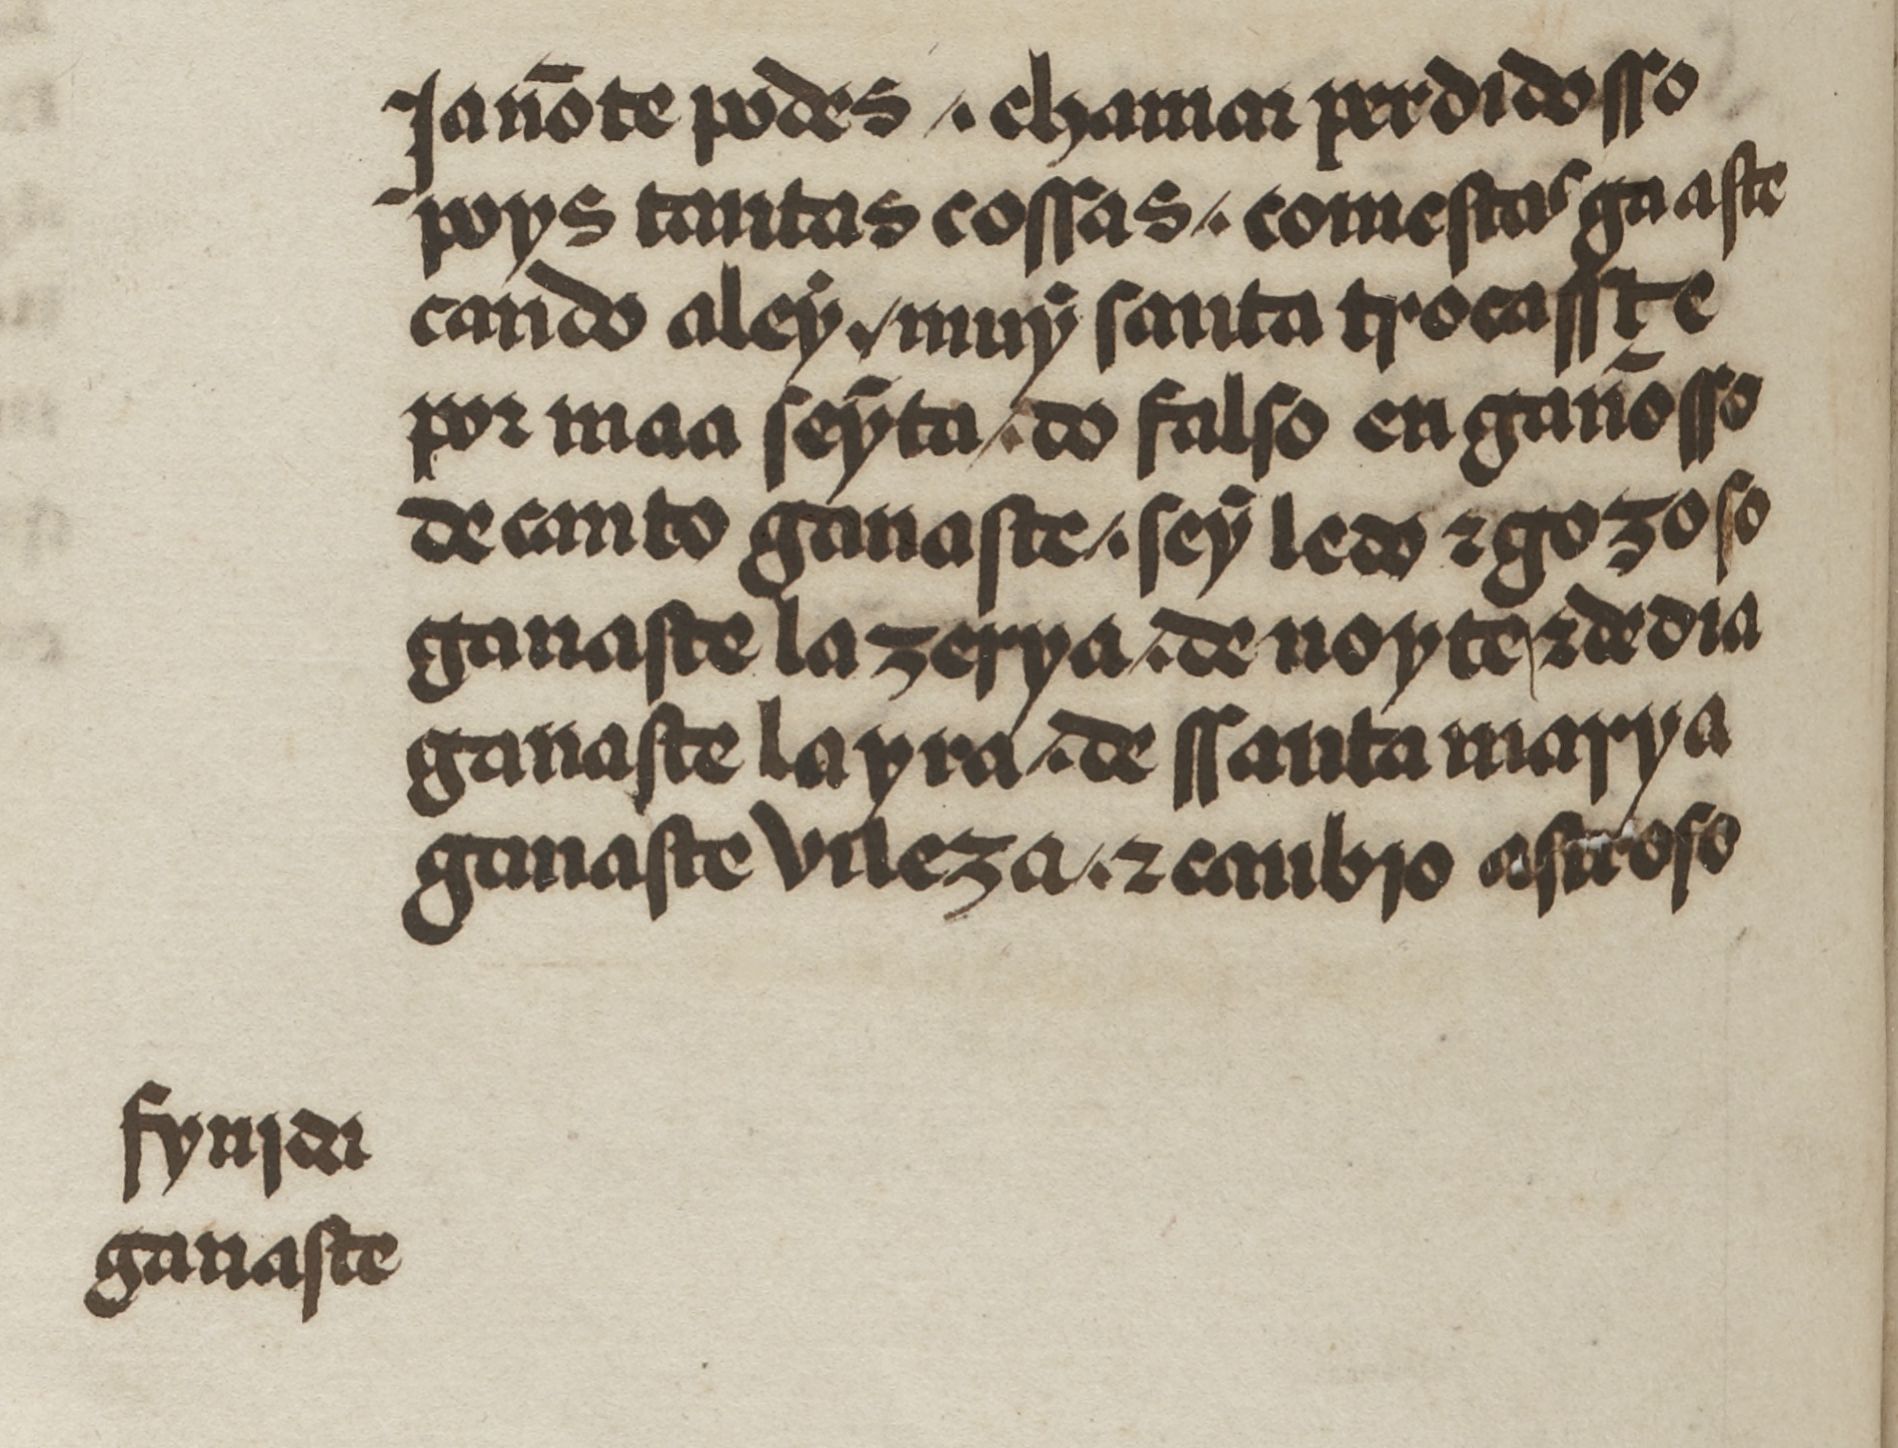 Ja nõ te podes /. chamar perdidosso
poys tantas cossas /. com estas gaaste
cando a leẏ ./ muẏ santa trocasste
por maa seẏta /. do falso engañosso
de canto ganaste /. seẏ ledo ⁊ gozoso
ganaste lazerya /. de noyte / ⁊ de dia
ganaste la yra /. de ssanta marya
ganaste vileza /. ⁊ canbio astroso
fynida
ganaste